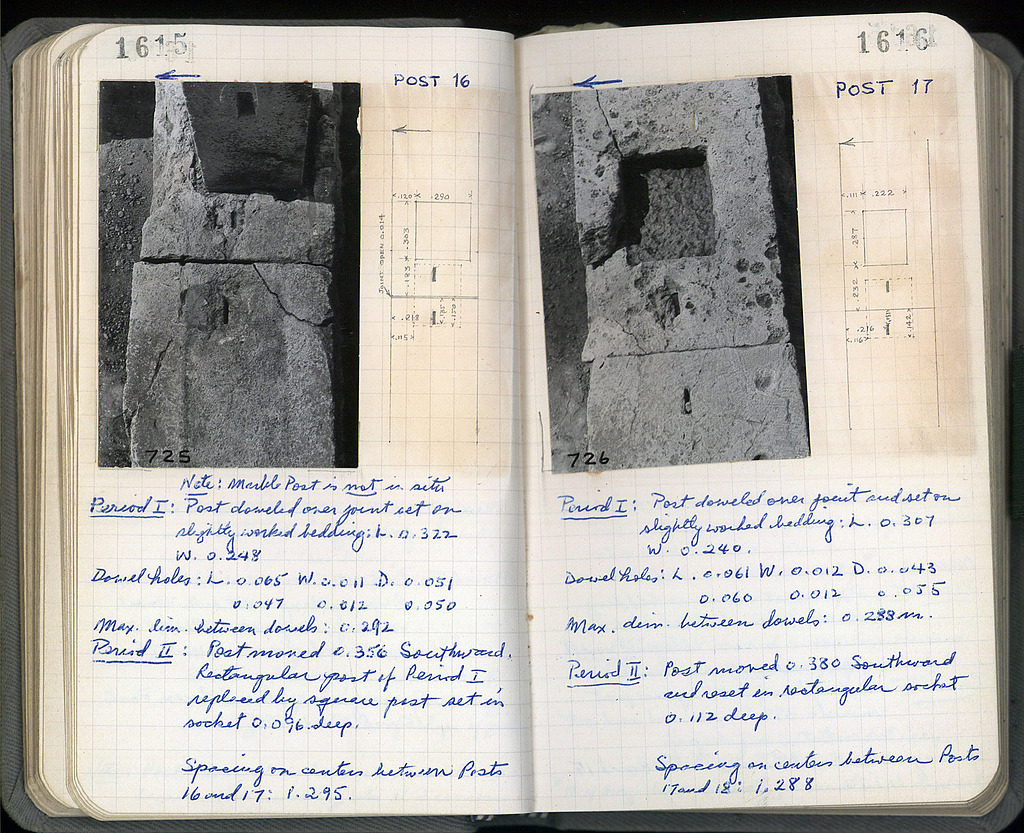 1615
POST 16
.120 .290
.303
JOINT OPEN 0.014
.183
.115
725
Note: Marble Post is not in situ
Period I: Post doweled over joint set on
slightly worked bedding: L. 0.322
W. 0.248
Dowel holes: L. 0.065 W. 0.011 D. 0.051
0.047 0.012 0.050
Max. dim. between dowels: 0.292
Period II: Post moved 0.356 Southward.
Rectangular post of Period I
replaced by square post set in
socket 0.096 deep.
Spacing on centers between Posts
16 and 17: 1.295.
1616
POST 17
.111 .222
.287
.232
.216
.142
.116
726
Period I: Post doweled over joint and set on
slightly worked bedding: L. 0.307
W. 0.240.
Dowel holes: L. 0.061 W. 0.012 D. 0.043
0.060 0.012 0.055
Max. dim. between dowels: 0.288 m.
Period II: Post moved 0.380 Southward
and reset in rectangular socket
0.112 deep.
Spacing on centers between Posts
17 and 18: 1.288